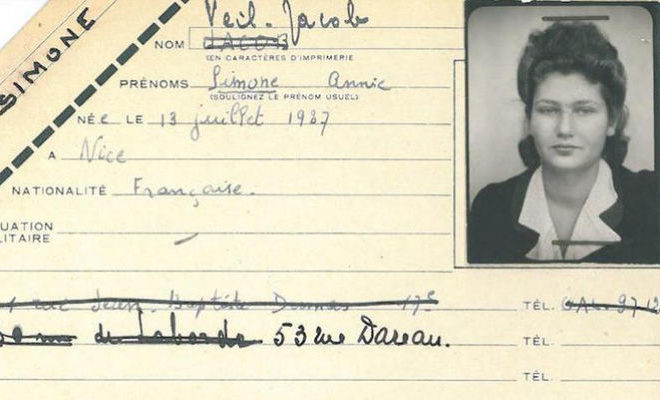 SIMONE
Veil-Jacob
NOM JACOB
(EN CARACTÈRES D'IMPRIMERIE
PRÉNOMS Simone Annie
(SOULIGNEZ LE PRÉNOM USUEL)
NÉe LE 13 juillet 1927
A Nice
NATIONALITÉ Française.
UATION
LITAIRE
rue Jean-Baptiste Dumas 17e TÉL. GAL. 97 12
rue de Laborde 53 rue Dareau. TÉL.
TÉL.